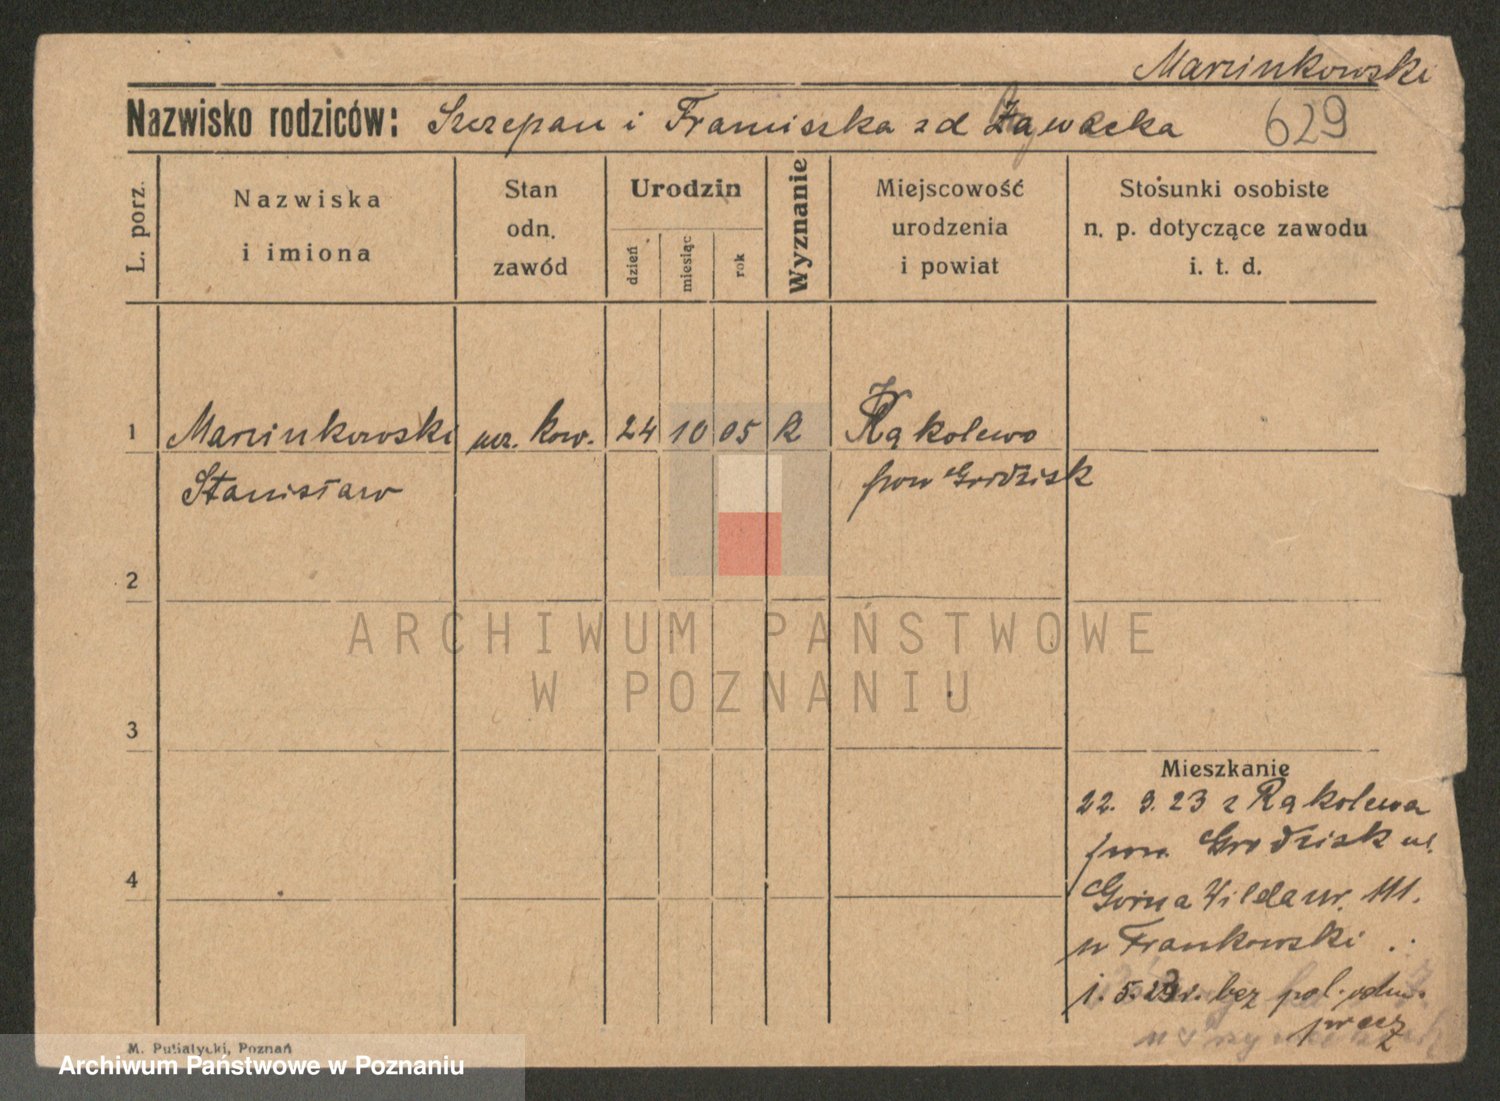 Marcinkowski
Nazwisko rodziców: Szczepan i Franciszka z d Zawacka
629
L. porz.
Nazwiska
i imiona
Stan
odn.
zawód
Urodzin
dzień
miesiąc
rok
Wyznanie
Miejscowość
urodzenia
i powiat
Stosunki osobiste
n. p. dotyczące zawodu
i. t. d.
1 Marcinkowski ucz. kow. 24 10 05 k Rąkolewo
Stanisław pow Grodzisk
2
ARCHIWUM PAŃSTWOWE
W POZNANIU
3
Mieszkanie
22. 9. 23 z Rąkolewa
pow. Grodzisk ul.
4
Górna Wilda nr. 111.
u Frankowski
1. 5. r. bez pol. odm.
precz
M. Putiatycki, Poznań
Archiwum Państwowe w Poznaniu